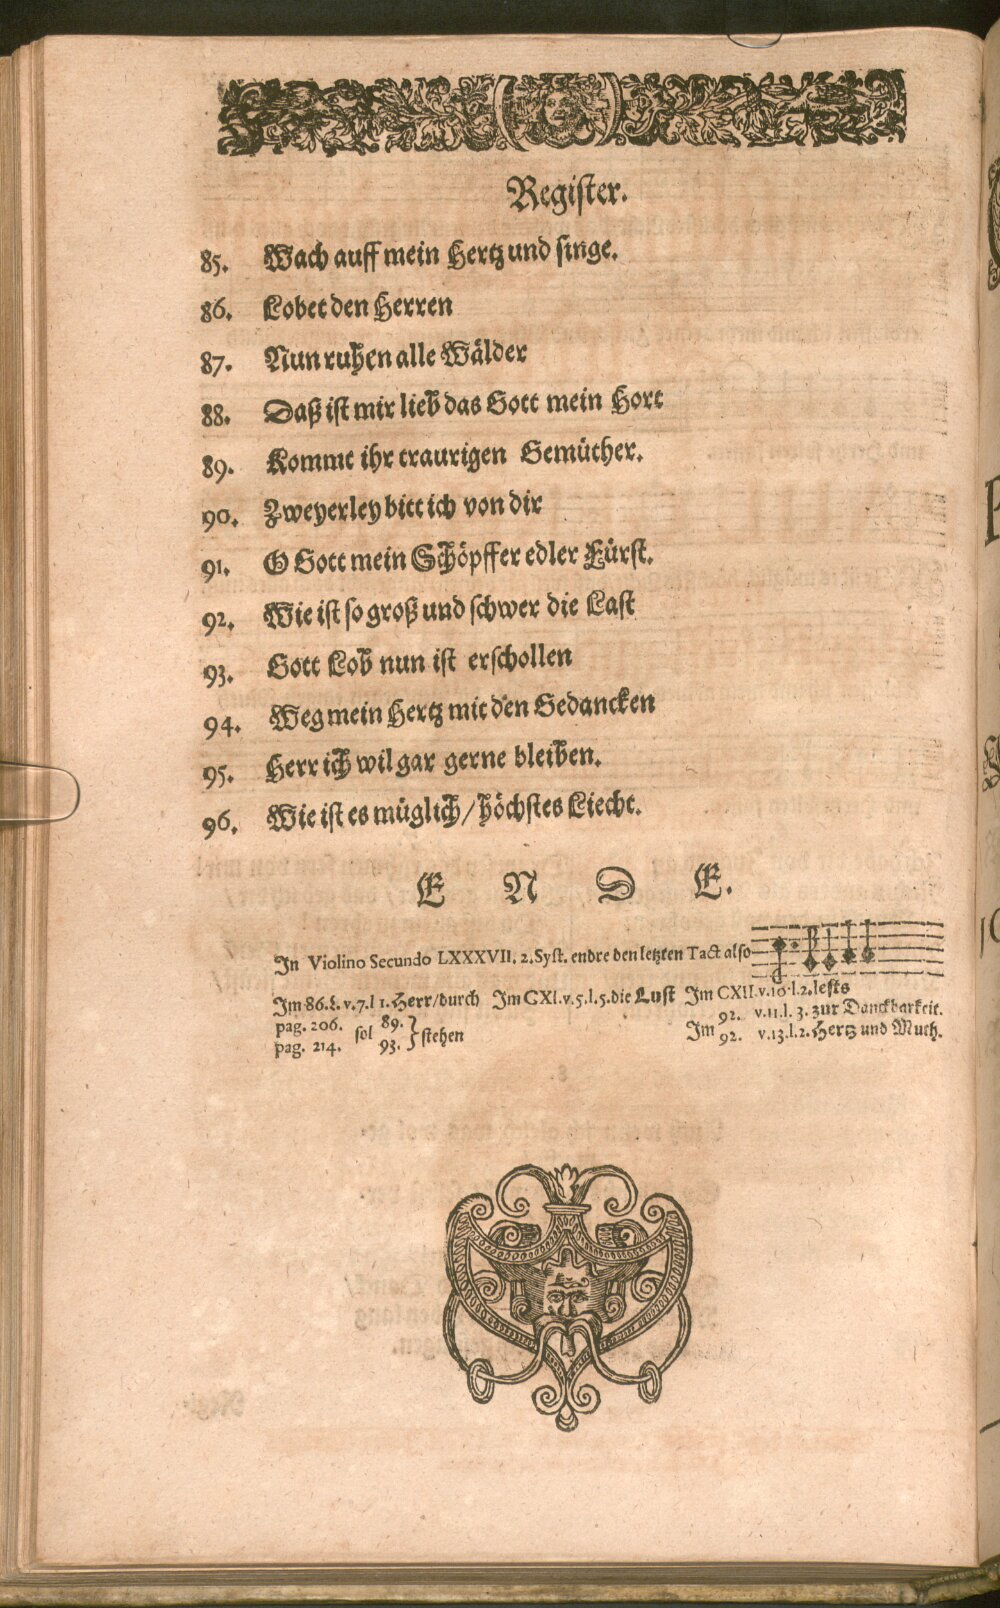 Register.
85. Wach auff mein Hertz und singe.
86. Lobet den Herren
87. Nun ruhen alle Wälder
88. Daß ist mir lieb das Gott mein Hort
89. Kommt ihr traurigen Gemüther.
90. Zweyerley bitt ich von dir
91. O Gott mein Schöpffer edler Fürst.
92. Wie ist so groß und schwer die Last
93. Gott Lob nun ist erschollen
94. Weg mein Hertz mit den Gedancken
95. Herr ich wil gar gerne bleiben.
96. Wie ist es müglich / höchstes Liecht.
E N D E.
In Violino Secundo LXXXVII. 2. Syst. endre den letzten Tact also
Im 86. L. v. 7. l 1. Herr / durch Im CXI. v. 5. l. 5. die Lust Im CXII. v. 10. l. 2. lests
pag. 206. sol 89. } stehen 92. v. 11. l. 3. zur Danckbarkeit.
pag. 214. 93. Im 92. v. 13. l. 2. Hertz und Muth.